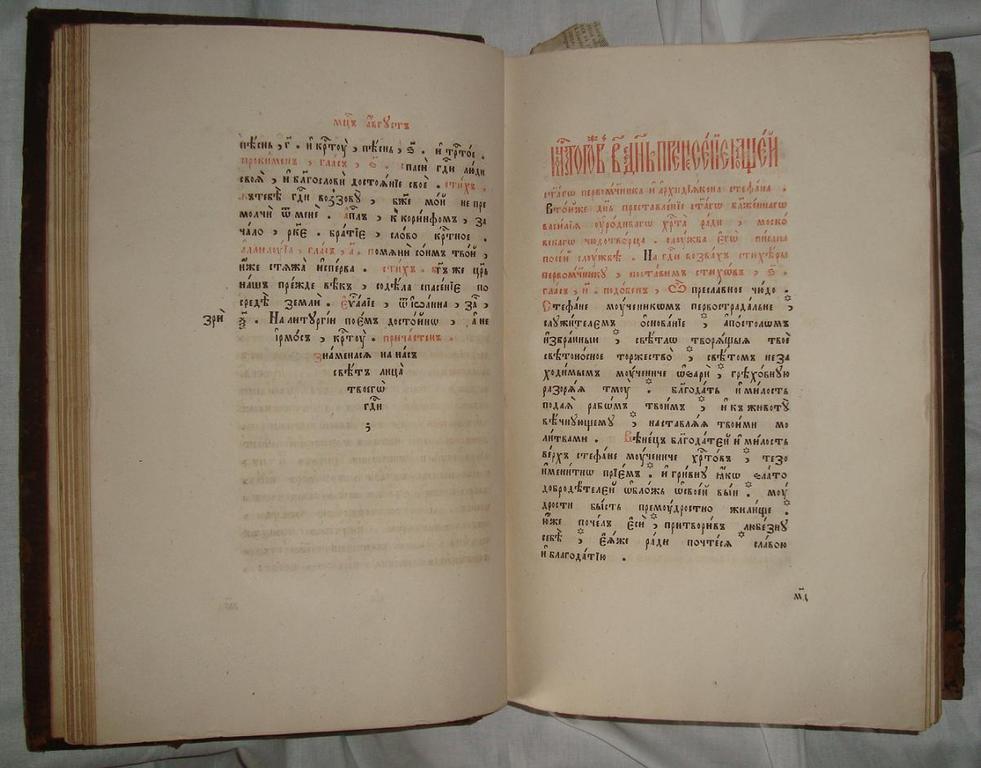 мц҃ъ а҆́вгустъ
пѣснь, г҃. и҆ крⷭ҇тоу̀, пѣснь, ѕ҃. и҆ трⷭ҇тос.
прокименъ, гласъ, ѕ҃. спасѝ гдⷭ҇и люди
своѧ̀, и҆ благословѝ достоѧнїе своѐ. стихъ.
къ тебѣ̀ гдⷭ҇и воззову̀, бж҃е мо́й не пре
молчѝ ѿ менѐ. а҆пл҃ъ, к̾ коринѳомъ, за
чало, рк҃е. братїе, слово крⷭ҇тное.
а҆ллилоуїа, гласъ, а҃. помѧнѝ сонмъ тво́й,
и҆́же стѧжа̀ исперва. стихъ. бг҃ъ же цр҃ь
нашъ прежде вѣкъ, содѣла спасенїе по
средѣ̀ земли. є҆ѵⷢ҇лїе, ѿ і҆ѡа́нна, за,
зрѝ
ѯ҃. На литургїи поемъ достойнѡ, а҆ не
і҆рмосъ, крⷭ҇тоу̀. причастенъ.
знаменасѧ на насъ
свѣтъ лица̀
твоегѡ̀
гдⷭ҇и
;
ст҃агѡ первомч҃ника и҆ архидїѧкона стефана.
В то́йже дн҃ь преставленїе ст҃агѡ бл҃женнагѡ
василїѧ ю҆родиваго хрⷭ҇та̀ ради, моско
вскагѡ чюдотворца. служба є҆гѡ̀ писана
по се́й службѣ. На гдⷭ҇и возвахъ стихѣры
первомч҃нику, поставимъ стихѡвъ, ѕ҃.
гласъ, и҃. подобенъ, Ѽ преславное чюдо.
Стефане моученикѡмъ первострадальне,
служителемъ ѡ҆снованїе, а҆постолѡмъ
и҆збранныи, свѣтлѡ творѧщыѧ твоѐ
свѣтоносное торжество, свѣтомъ неза
ходимымъ моучениче ѡ҆зарѝ, грѣховную
разорѧѧ тмоу̀. благодать и҆ милость
подаѧ̀ рабѡмъ твоимъ, и҆ къ животу
вѣчнующему, наставлѧѧ твоими мо
литвами. Вѣнецъ бл҃годатей и҆ милость
верхъ стефане моучениче хрⷭ҇товъ, тезо
именитнѡ прїемъ. и҆ гривну ꙗ҆кѡ злато
добродѣтелей ѡ҆бложь ѡ҆ своей выи. моу
дрости бысть премоудростно жилище.
ю҆́же почелъ є҆сѝ, притворивъ любезну
себѣ̀, є҆ѧ́же ради почтесѧ славою
и҆ благодатїю.